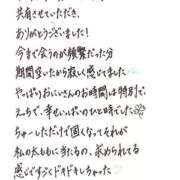 共有させていただき、
ありがとうございました!
今まで会うのが頻繁だった分
期間空いたから寂しく感じてました
やっぱりおにいさんのお時間は特別で、
えっちで、幸せいっぱいのひと時でした♡
ちゅーしただけで固くなってそれが
私の太ももに当たるの、求められてる
感じですごくドキドキしちゃった♡